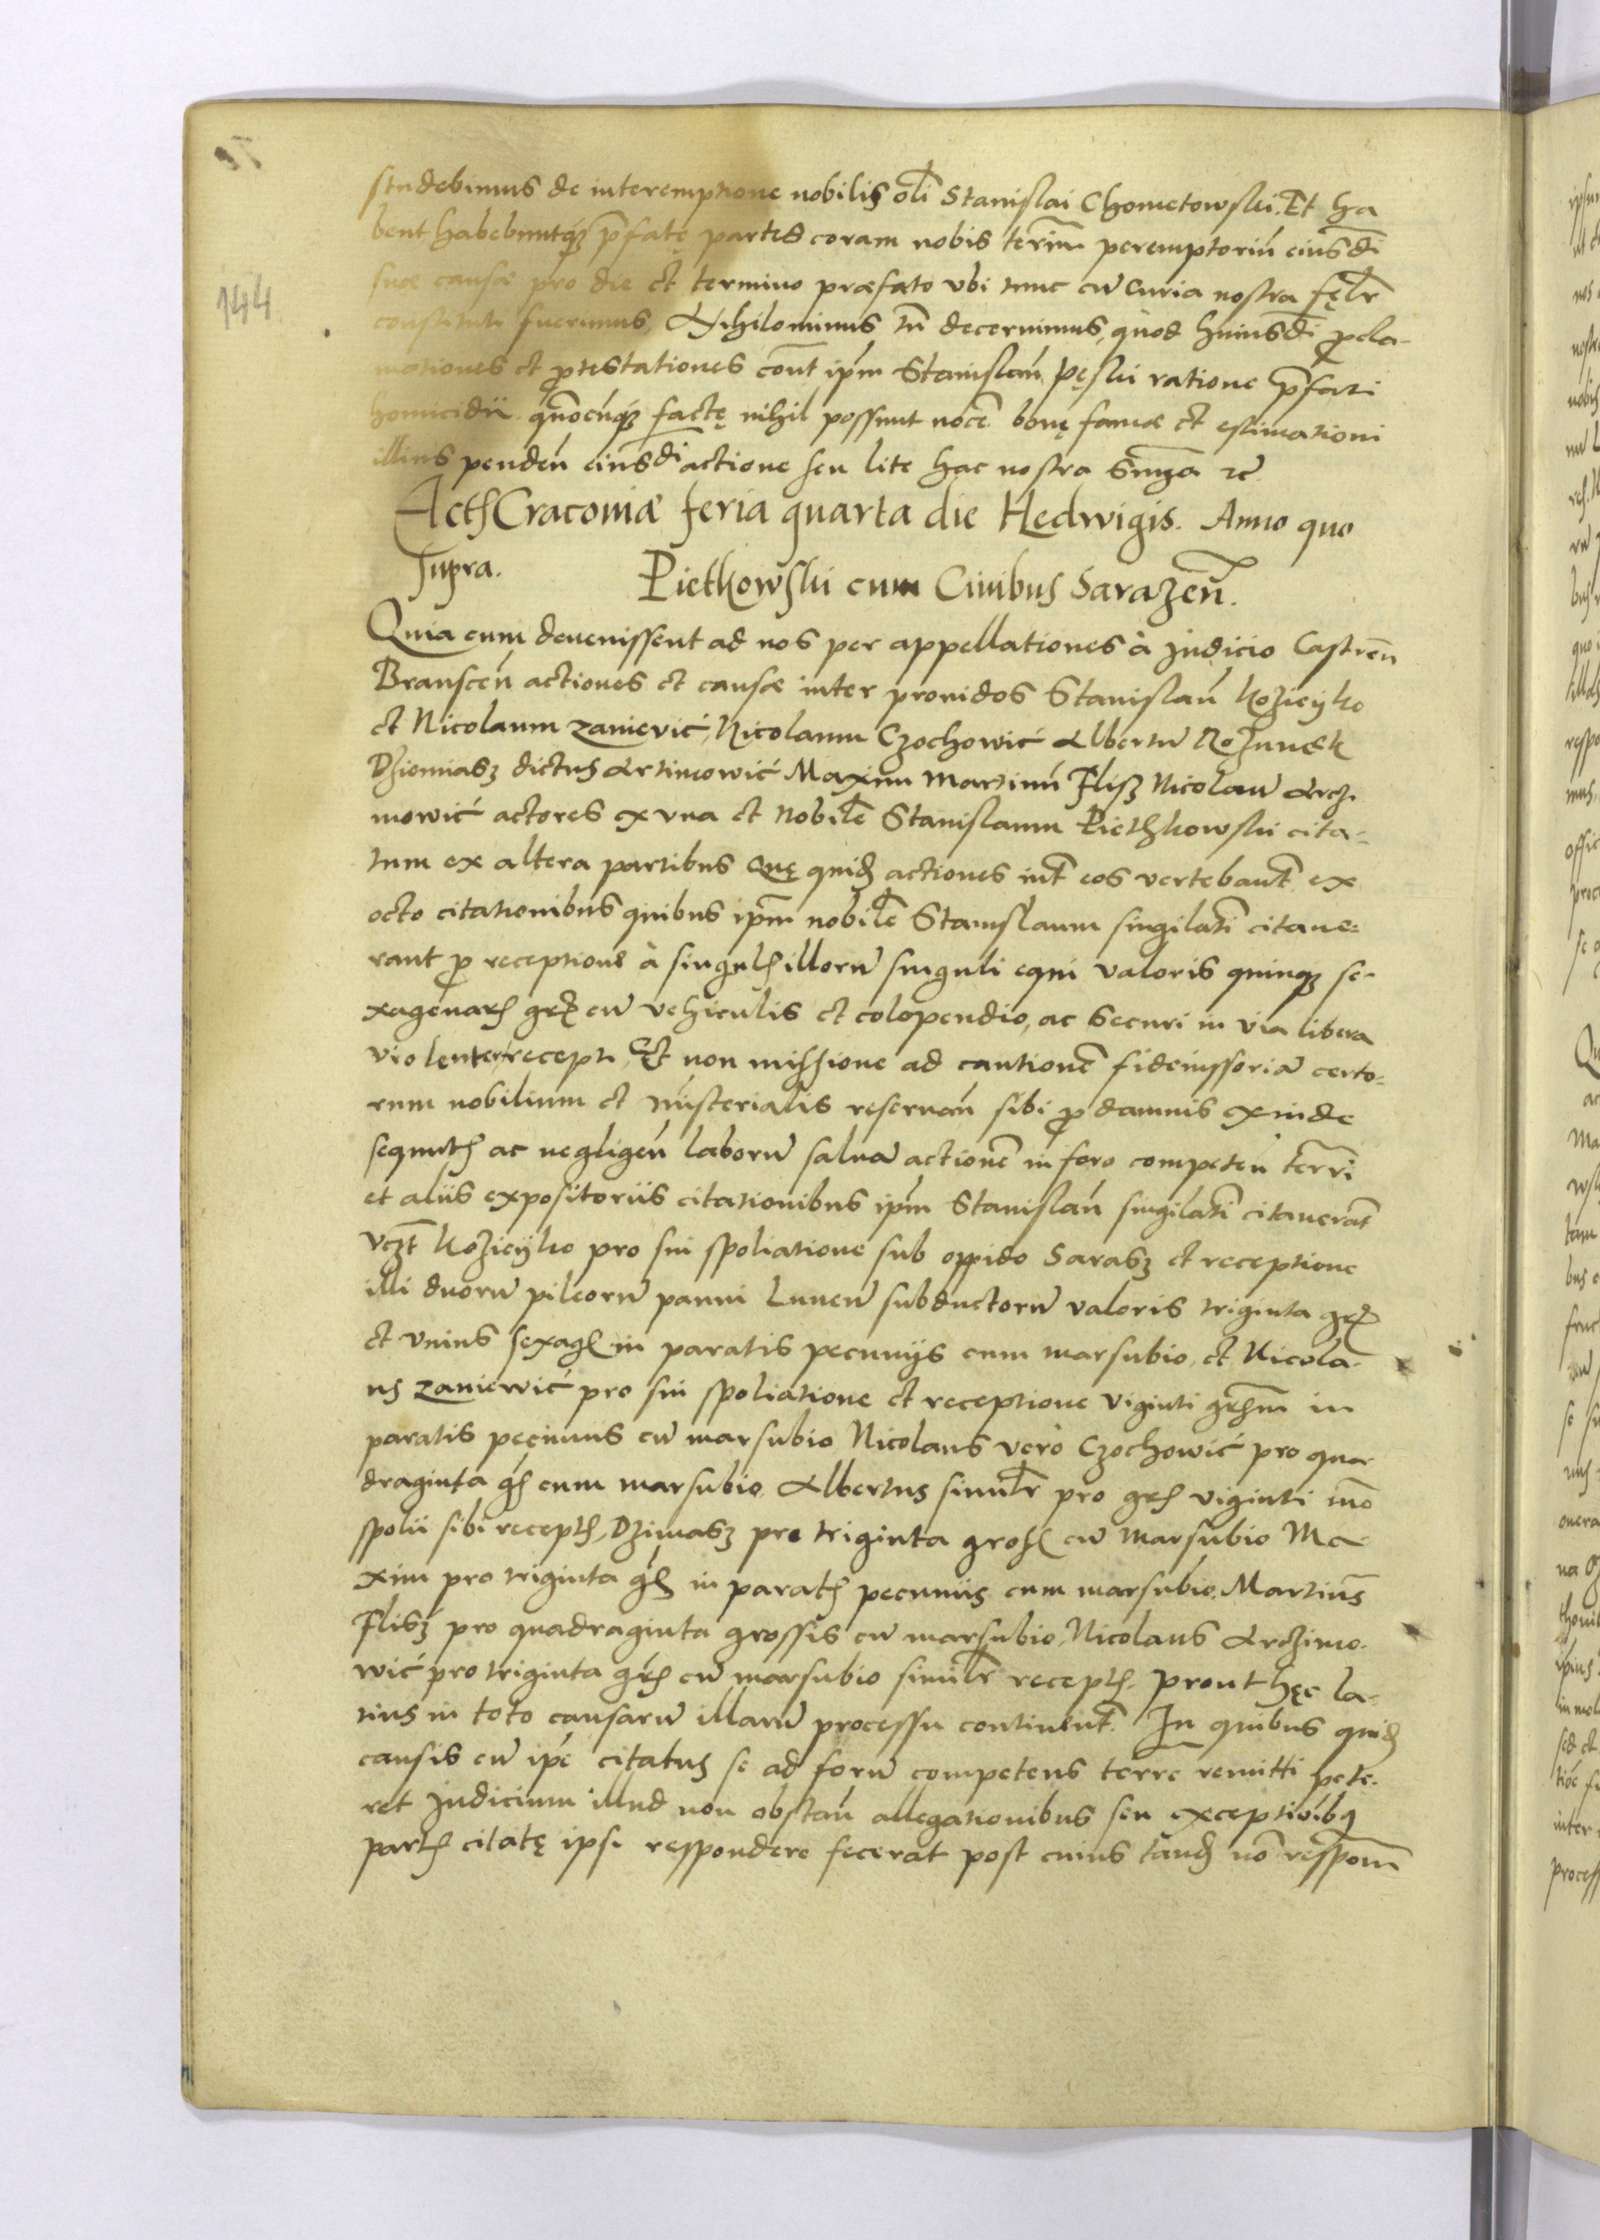 144
studebimus de interemptione nobilis oli Stanislai Chometowski. Et ha
bent habebuntq; pfatę partes coram nobis termi peremptoriu eiusdi
suæ causæ pro die et termino præfato vbi tunc cu curia nostra fęlr
constituti fuerimus, Nihilominus tn decernimus, quod huiusdi pcla-
mationes et ptestationes cont ipm Stanislau Pęski ratione pfati
homicidii quocuq; factę nihil possunt noce bonę famæ et estimationi
illius penden eiusdi actione seu lite hac nostra snia rc
Acth Cracoviæ feria quarta die Hedwigis. Anno quo
supra. Pietkowski cum Ciuibus Sarazen.
Quia cum deuenissent ad nos per appellationes à Judicio Castren
Branscen actiones et causæ inter prouidos Stanislau Kozieyko
et Nicolaum Zaniewić, Nicolaum Czochowić Albertu
Dziemiasz dictus Artimowić Maxim Martinu Flisz Nicolau Arczi
mowić actores ex vna et Nobile Stanislaum Piethkowski cita-
tum ex altera partibus Quę quid actiones int eos vertebant ex
octo citationibus quibus ipm nobile Stanislaum singilati citaue-
rant p receptione à singulis illoru singuli equi valoris quinq; se-
xagenars grs cu vehiculis et colopendio, ac Securi in via libera
violenter recepti, Et non missione ad cautione fideiussoria certo-
rum nobilium et misterialis reseruan sibi p damnis exinde
sequutis ac negligen laboru salua actione in foro competen terri
et aliis expositoriis citationibus ipm Stanislau singilati citauerat
vczt Kozieyko pro sui spoliatione sub oppido Sarasz et receptione
illi duoru pileoru panni Lunen subductoru valoris triginta grs
et vnius sexags in paratis pecunijs cum marsubio, et Nicola-
us Zaniewić pro sui spoliatione et receptione viginti grsm in
paratis pecuniis cu marsubio Nicolaus vero Czochowić pro qua
draginta gs cum marsubio Albertus similr pro grs viginti mo
spolii sibi recepts, Dzimasz pro triginta gross cu marsubio Ma-
xim pro triginta gs in parats pecuniis cum marsubio, Martinus
Flisz pro quadraginta grossis cu marsubio, Nicolaus Arczimo-
wić pro triginta grs cu marsubio similr recepts. Prout hęc la-
tius in toto causaru illaru processu continent. In quibus quid
causis cu ipe citatus se ad foru competens terre remitti pete-
ret Judicium illud non obstan allegationibus seu exceptioibq
parts citatę ipsi respondere fecerat post cuius tand no respom